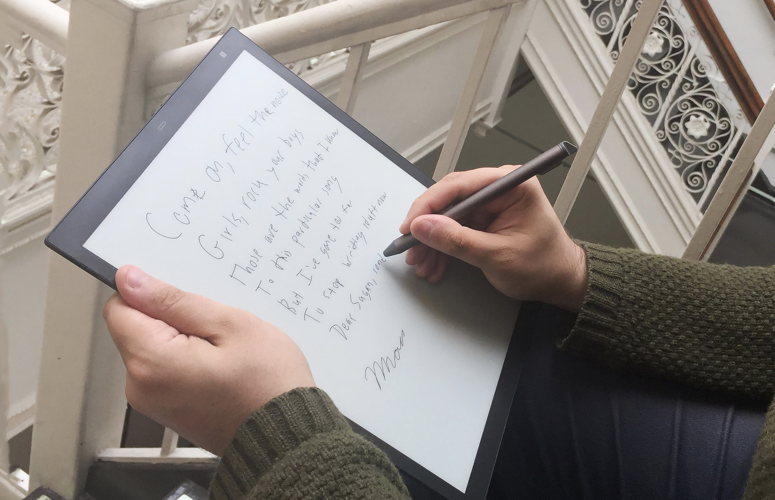 Come on, feel the noise
Girls, rock your boys
Those are the words that I know
To this particular song
But I've gone too far
To stop writing stuff now
Dear Susan,